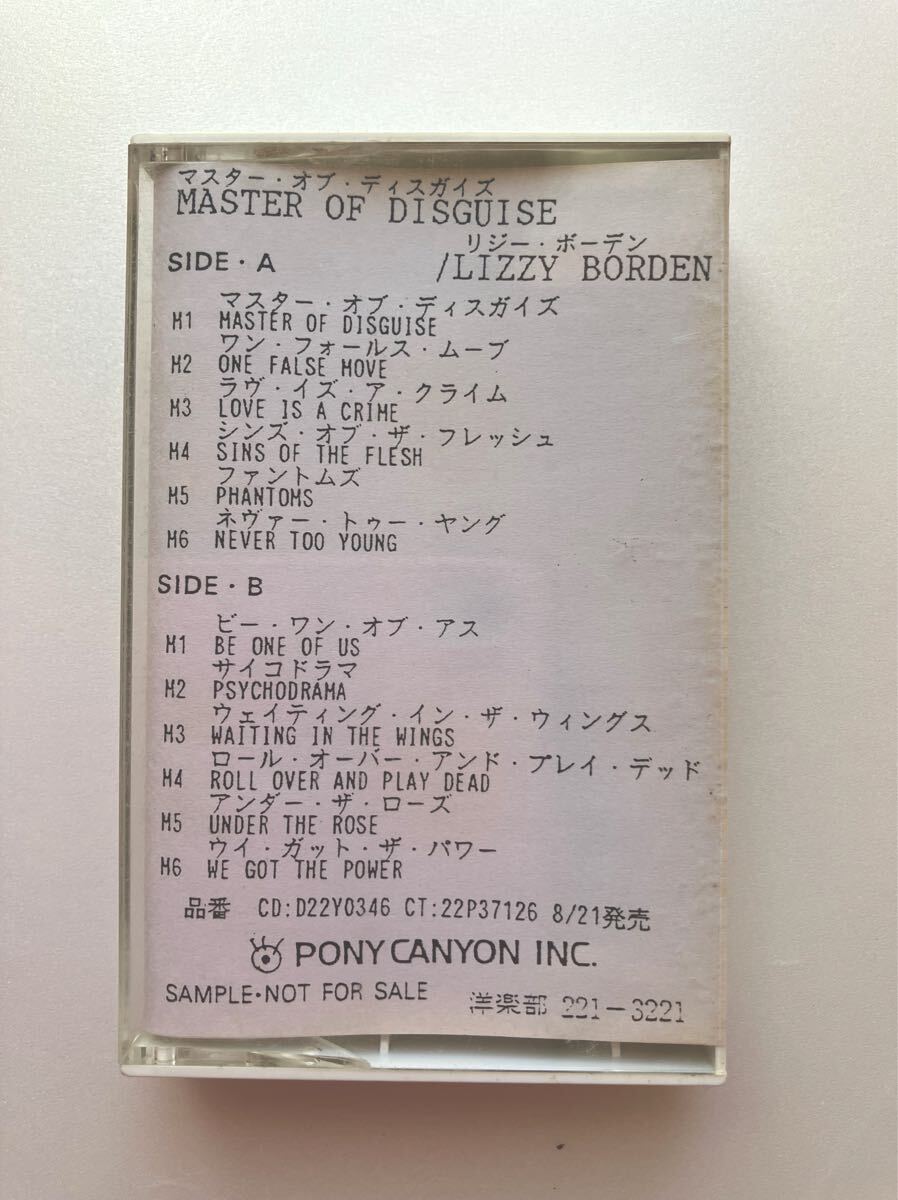 マスター・オブ・ディスガイズ
MASTER OF DISGUISE
リジー・ボーデン
SIDE・A /LIZZY BORDEN
マスター・オブ・ディスガイズ
M1 MASTER OF DISGUISE
ワン・フォールス・ムーブ
M2 ONE FALSE MOVE
ラヴ・イズ・ア・クライム
M3 LOVE IS A CRIME
シンズ・オブ・ザ・フレッシュ
M4 SINS OF THE FLESH
ファントムズ
M5 PHANTOMS
ネヴァー・トゥー・ヤング
M6 NEVER TOO YOUNG
SIDE・B
ビー・ワン・オブ・アス
M1 BE ONE OF US
サイコドラマ
M2 PSYCHODRAMA
ウェイティング・イン・ザ・ウィングス
M3 WAITING IN THE WINGS
ロール・オーバー・アンド・プレイ・デッド
M4 ROLL OVER AND PLAY DEAD
アンダー・ザ・ローズ
M5 UNDER THE ROSE
ウイ・ガット・ザ・パワー
M6 WE GOT THE POWER
品番 CD:D22Y0346 CT:22P37126 8/21発売
PONY CANYON INC.
SAMPLE・NOT FOR SALE 洋楽部 221-3221